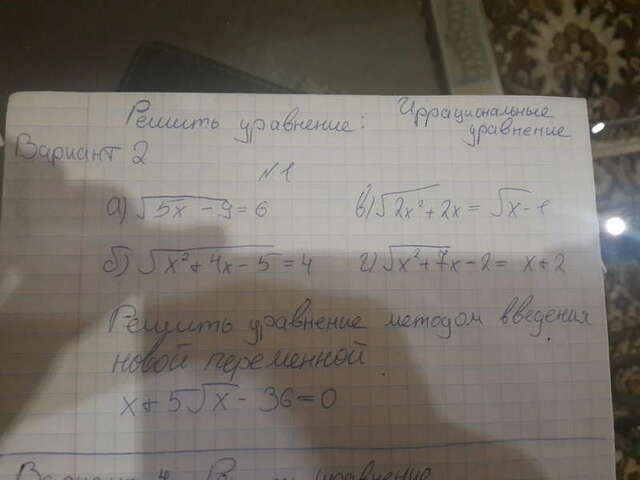 Решить уравнение: Иррациональные уравнение
Вариант 2
№1
а) √5x - 9 = 6 в) √2x² + 2x = √x - 1
б) √x² + 4x - 5 = 4 г) √x² + 7x - 2 = x + 2
Решить уравнение методом введения
новой переменной.
x + 5√x - 36 = 0